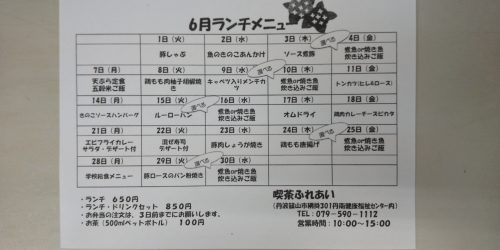 6月ランチメニュー
1日（火） 2日（水） 3日（木） 4日（金）
選べる
豚しゃぶ 魚のきのこあんかけ ソース煮豚 煮魚or焼き魚
炊き込みご飯
7日（月） 8日（火） 9日（水） 10日（木） 11日（金）
選べる
天ぷら定食 鶏もも肉柚子胡椒焼き キャベツ入りメンチカツ 煮魚or焼き魚 トンカツ(ヒレ&ロース)
五穀米ご飯 炊き込みご飯
14日（月） 15日（火） 16日（水） 17日（木） 18日（金）
選べる
きのこソースハンバーグ ルーローハン 煮魚or焼き魚 オムドライ 鶏肉カレーチーズピカタ
炊き込みご飯
21日（月） 22日（火） 23日（水） 24日（木） 25日（金）
選べる
エビフライカレー 混ぜ寿司 豚肉しょうが焼き 鶏もも唐揚げ 煮魚or焼き魚
サラダ・デザート付 デザート付 炊き込みご飯
28日（月） 29日（火） 30日（水）
選べる
学校給食メニュー 豚ロースのパン粉焼き 煮魚or焼き魚
炊き込みご飯
・ランチ 650円
・ランチ・ドリンクセット 850円
・お弁当の注文は、3日前までにお願いします。
・お茶（500mlペットボトル） 100円
喫茶ふれあい
（丹波篠山市網掛301丹南健康福祉センター内）
TEL：079-590-1112
営業時間：10:00～15:00